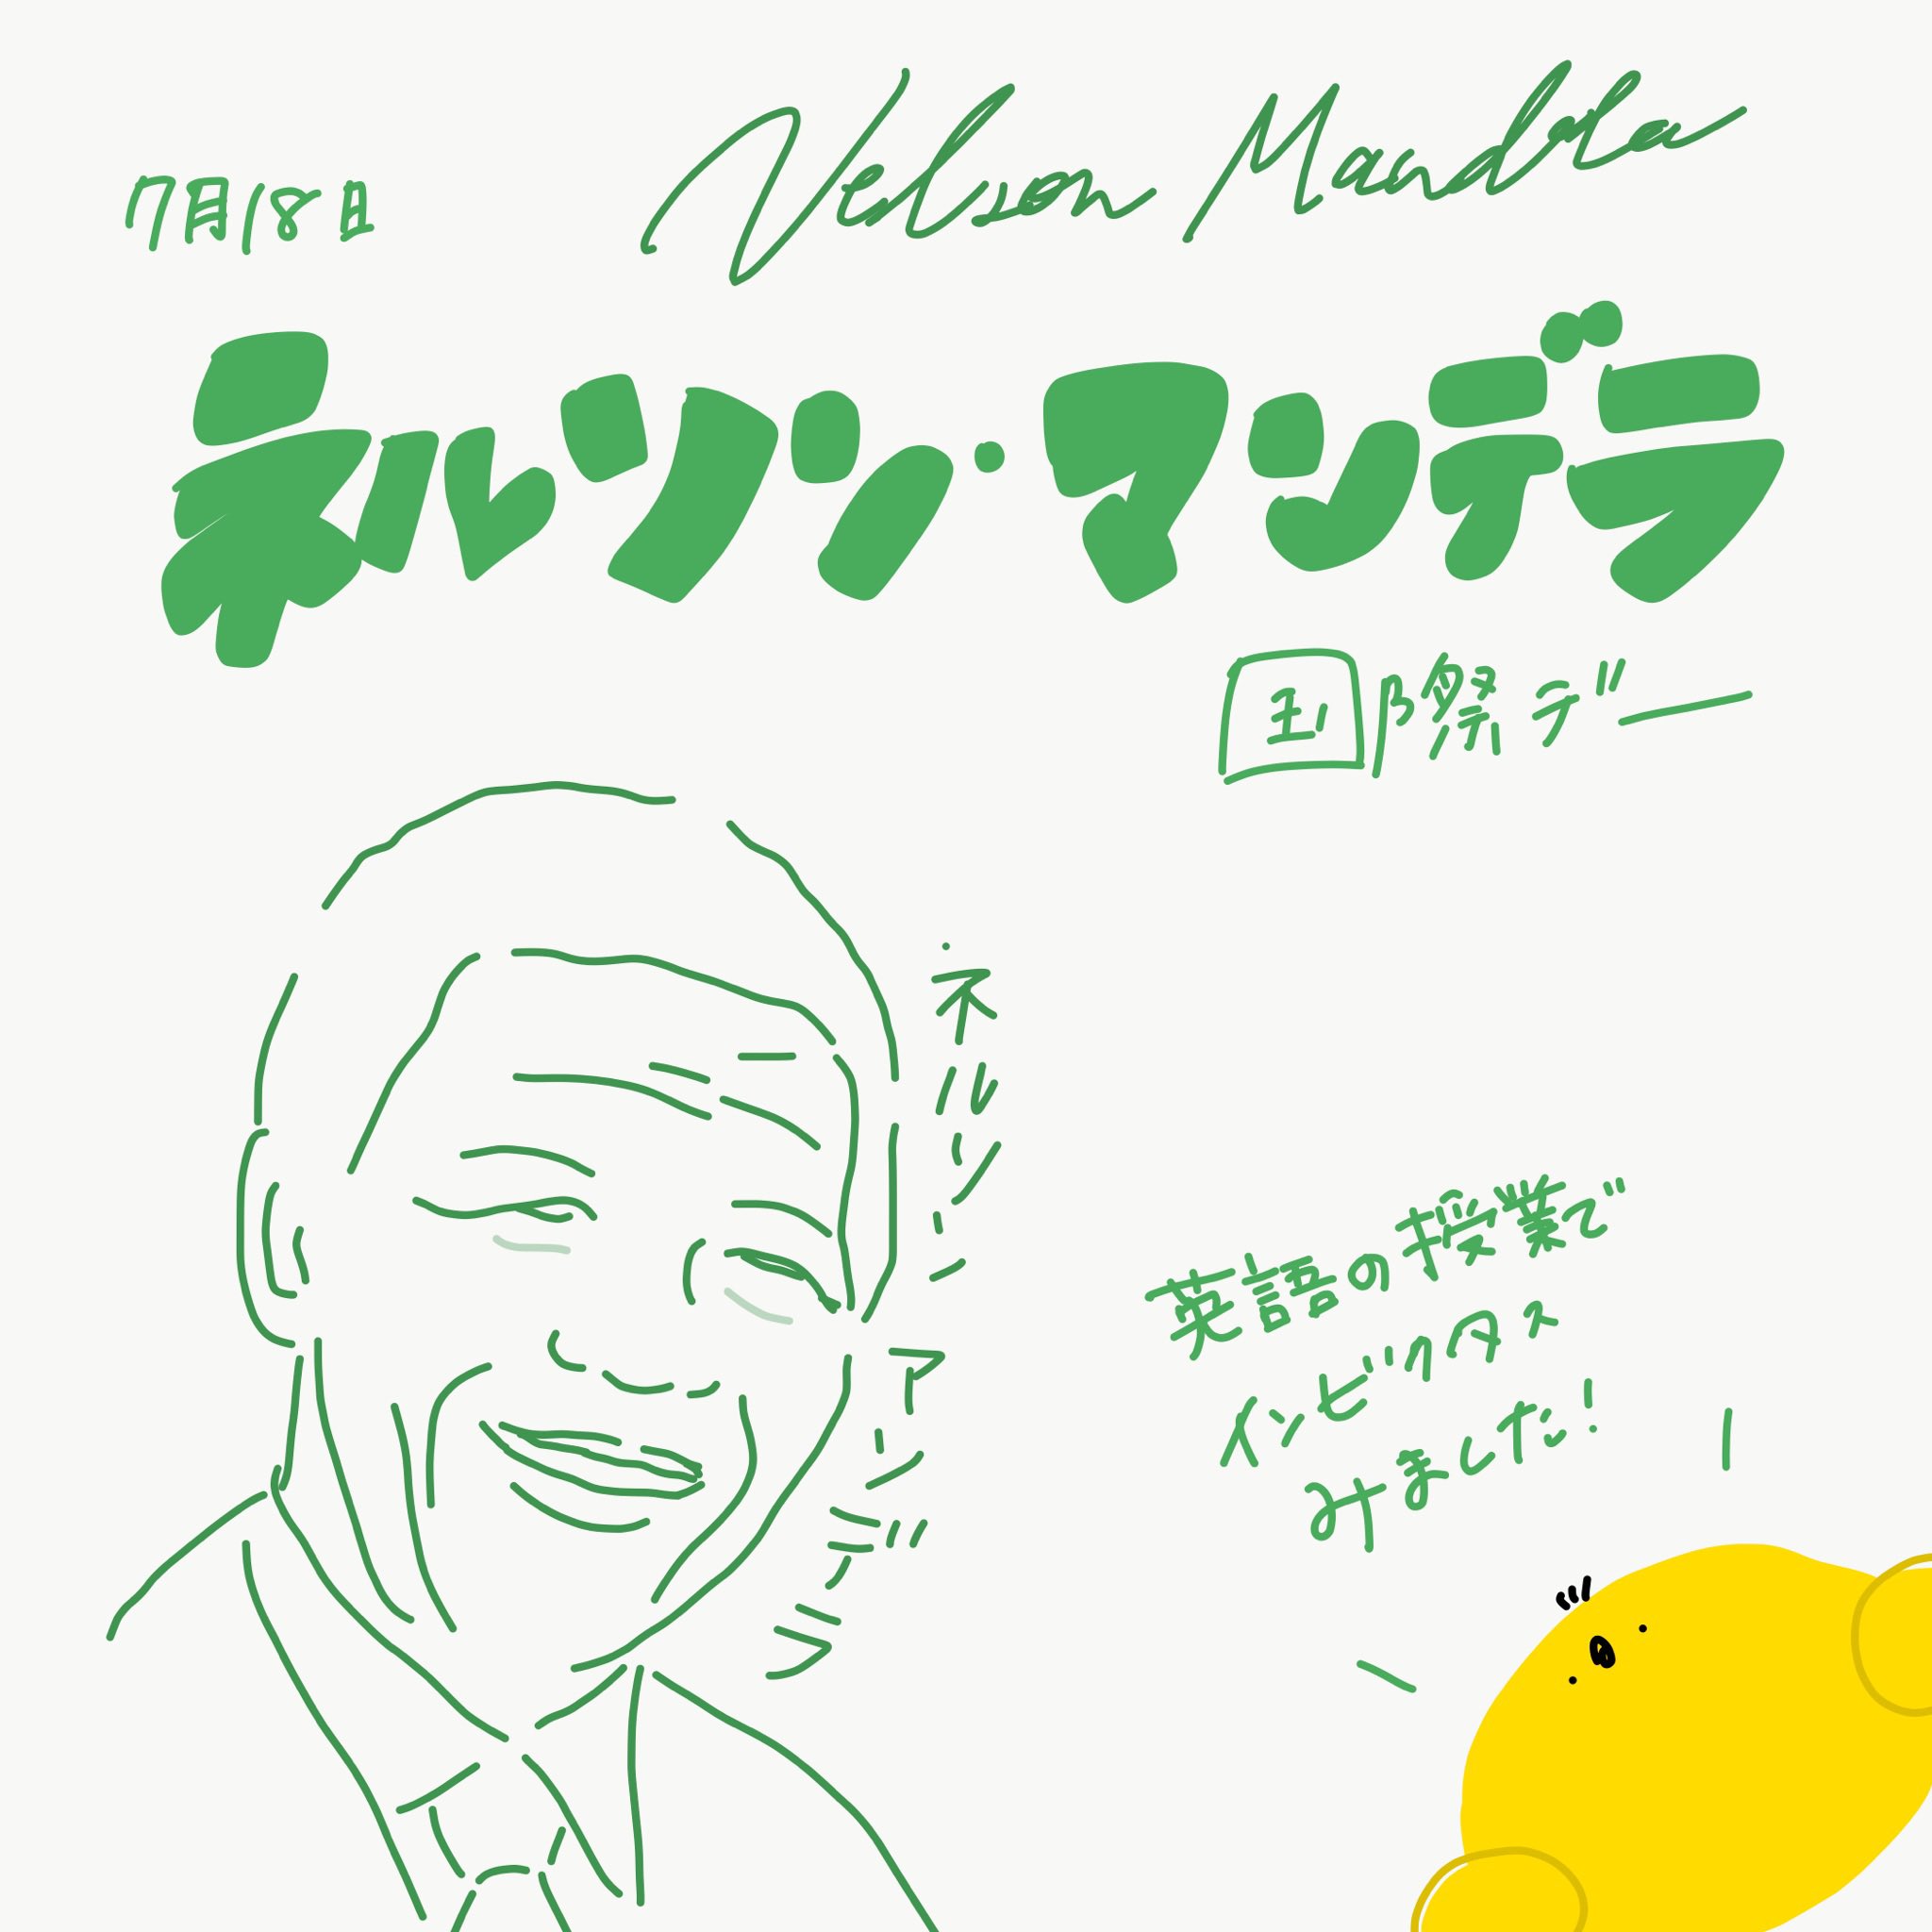 7月18日
Nelson Mandela
ネルソン・マンデラ
国際デー
ネルソン・マンデラ
英語の授業で
インビクタス
みました!